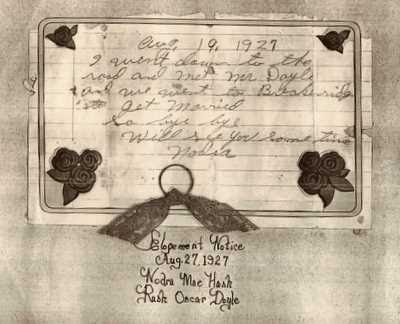 Aug, 19, 1927
I went down to the
road and met Mr Doyle
and we went to Breckenridge
to Get Married
so bye bye
Will see you sometime
Nodra
Elopement Notice
Aug. 27, 1927
Nodra Mae Hash
Rush Oscar Doyle